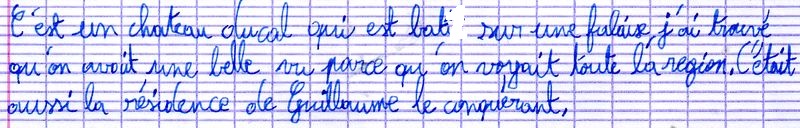 C'est un chateau ducal qui est bati sur une falaise, j'ai trouvé
qu'on avait une belle vu parce qu'on voyait toute la region. C'était
aussi la résidence de Guillaume le conquérant,